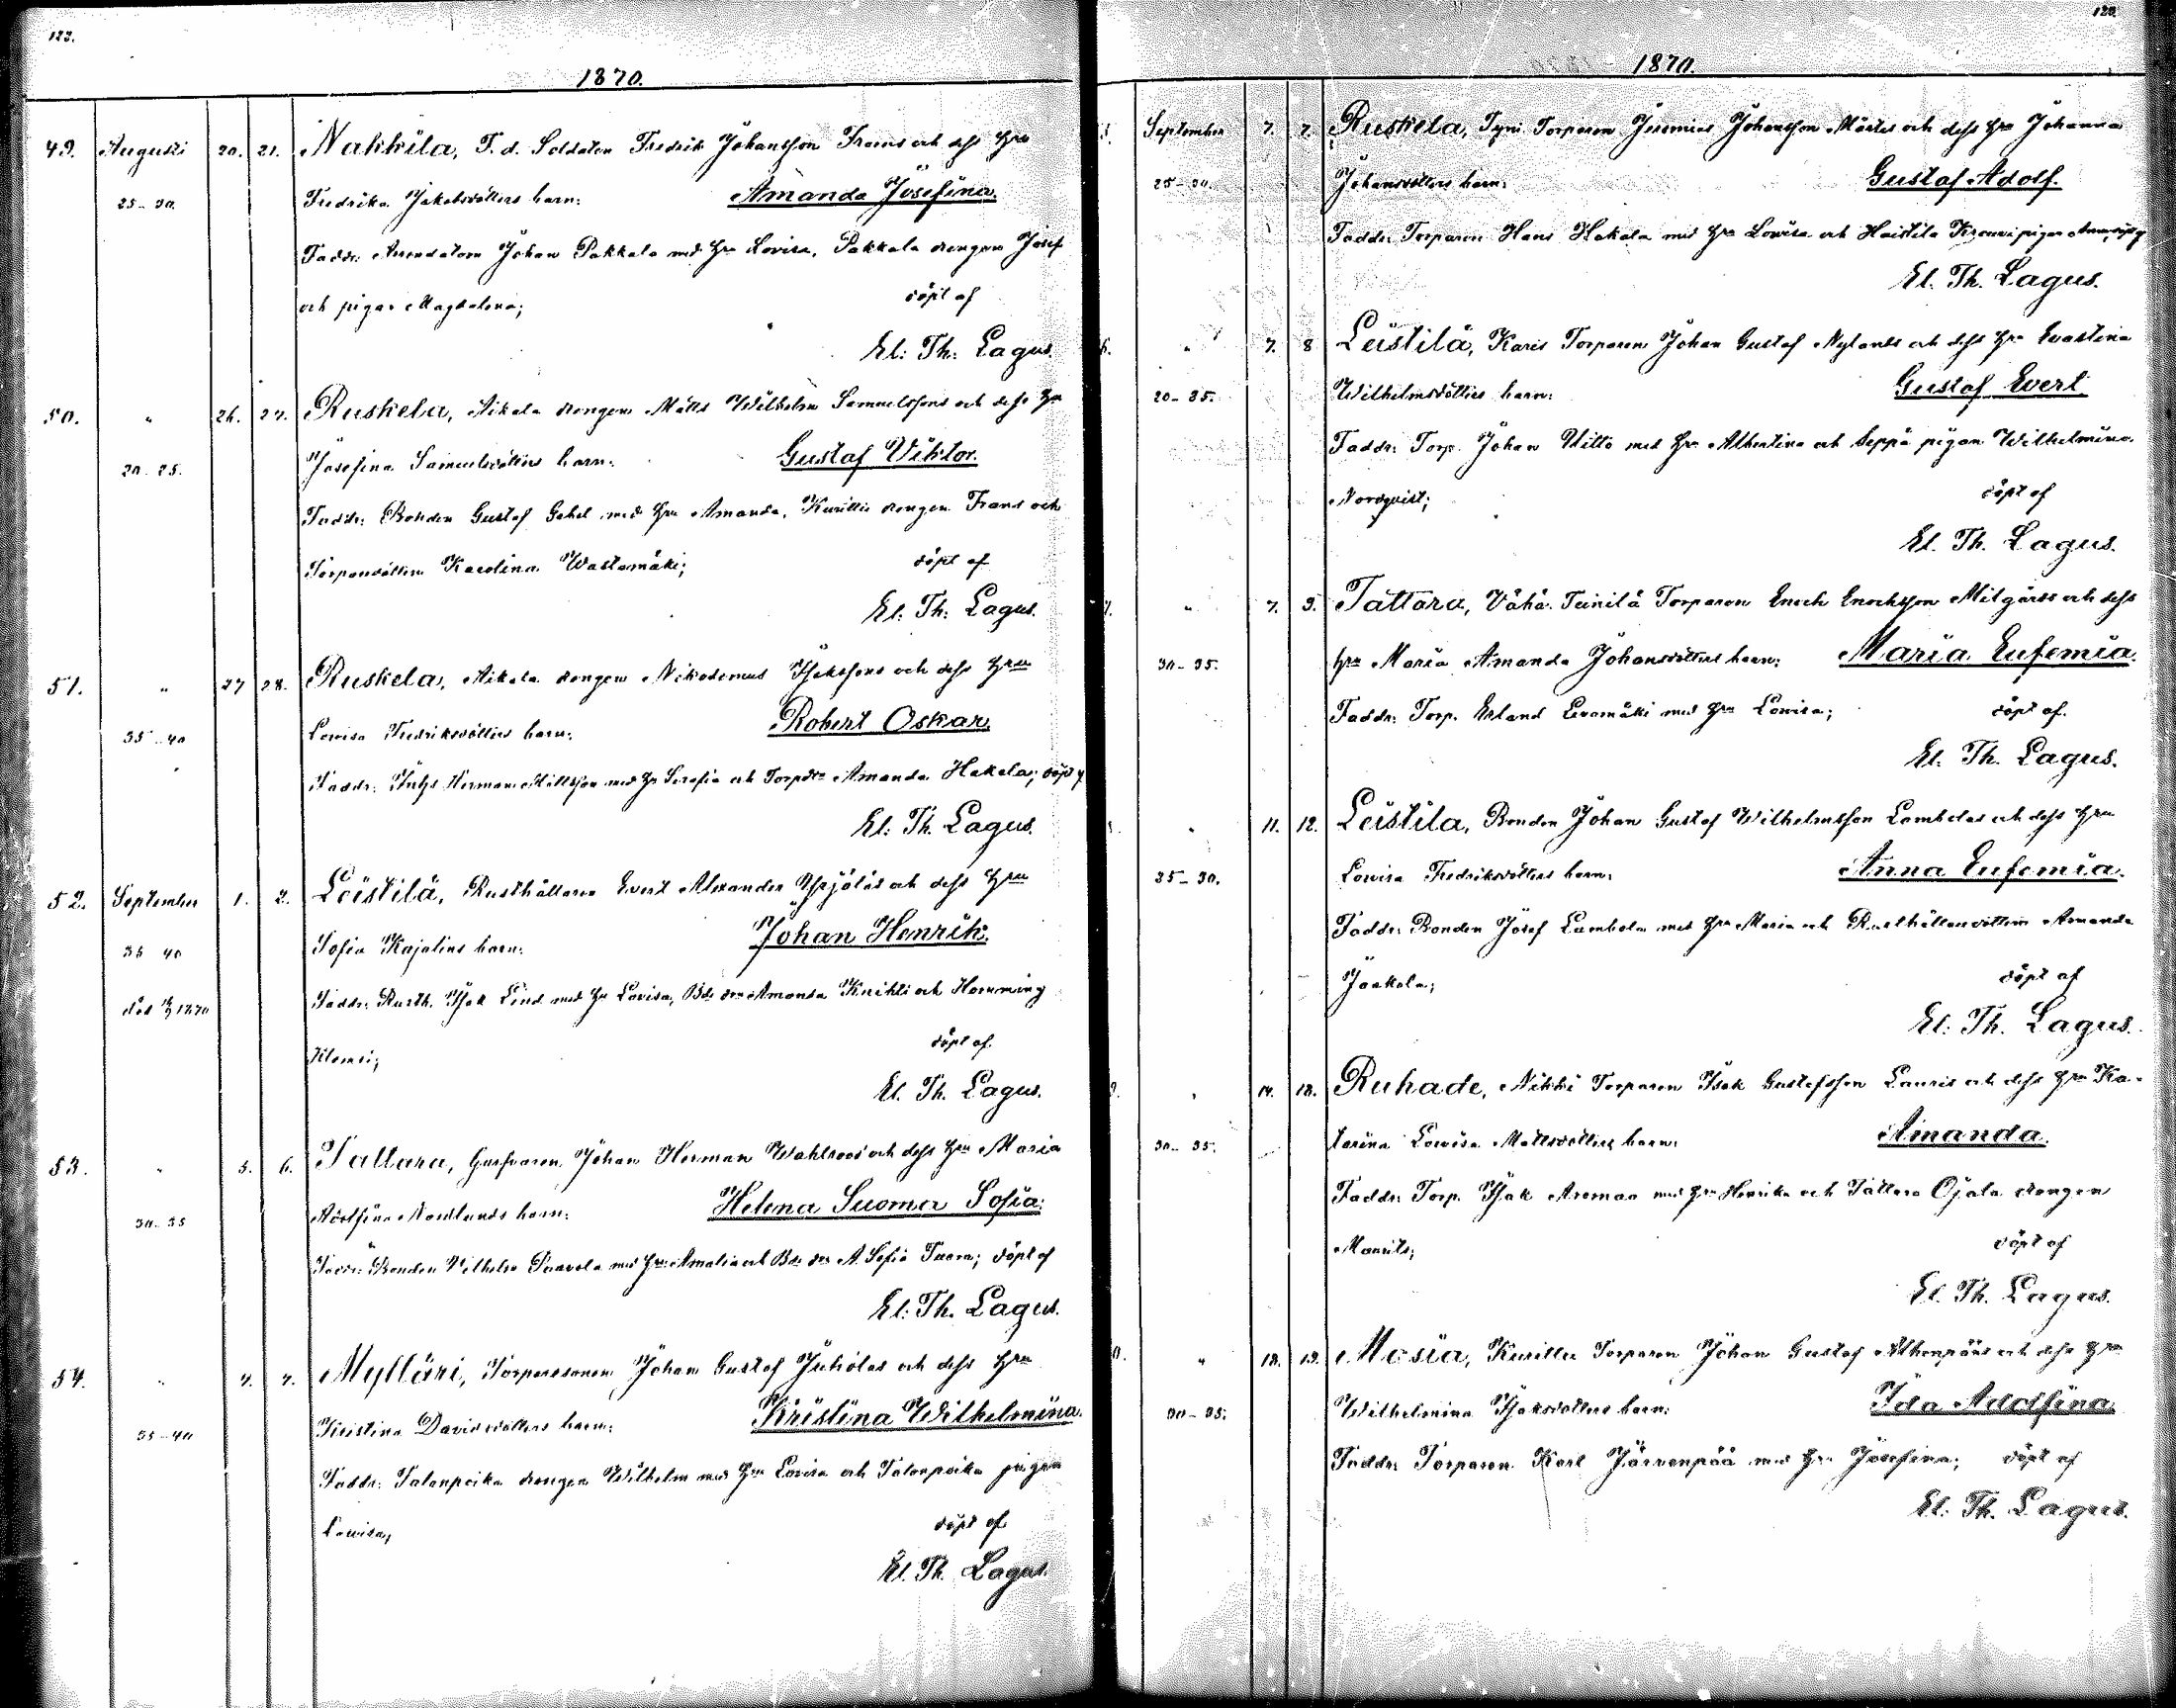 122.
1870.
49. Augusti 20. 21. Nakkila, F. d. Soldaten Fredrik Johansson Froms och dess hru
25-30. Fredrika Jakobsdotters barn: Amanda Josefina.
Faddr: Arrendatorn Johan Pakkala med hru Lovisa, Pakkala drengen Josef
och pigan Magdalena; döpt af
El: Th: Lagus.
50. " 26. 27. Ruskela, Aikala drengen Matts Wilhelm Samuelssons och dess hru
20-25. Josefina Samuelsdotters barn: Gustaf Viktor.
Faddr: Bonden Gustaf Gahel med hru Amanda, Kurittu drengen Frans och
Torparedottern Karolina Wastamäki; döpt af
El: Th: Lagus.
51. " 27 28. Ruskela, Aikala drengen Nikodemus Isakssons och dess hru
35-40 Lovisa Fredriksdotters barn: Robert Oskar.
Faddr: Inhs Herman Mattsson med hr Serafia och Torpdr Amanda Hakala; döpt af
El: Th. Lagus.
52. September 1. 2. Leistilä, Rusthållaren Evert Alexander Yrjölä och dess hru
35 40 Sofia Kajalins barn: Johan Henrik.
död 1870 Faddr: Rusth. Isak Lind med hr Lovisa, Bde dr Amanda Knihti och Hemming
Klemsi; döpt af
El. Th. Lagus.
53. " 5. 6. Tattara, Garfvaren Johan Herman Wahlroos och dess hru Maria
30-35 Adolfina Nordlunds barn: Helena Suoma Sofia.
Faddr: Bonden Vilhelm Paavola med hru Amalia och Bde dr A. Sofia Tuom; döpt af
El: Th. Lagus.
54. " 7. 7. Mylläri, Torparesonen Johan Gustaf Juholas och dess hru
35-40 Kristina Davidsdotters barn: Kristina Wilhelmina.
Faddr: Talonpoika drengen Wilhelm med hru Lovisa och Talonpoika pigan
Lowisa; döpt af
El. Th. Lagus.
123.
1870.
September 7. 7. Ruskela, Tyni Torparen Jeremias Johansson Mårtes och dess hru Johanna
25-30. Johansdotters barn: Gustaf Adolf.
Faddr: Torparen Hans Hakala med hru Lowisa och Haistila pigan Anna; döpt af
El. Th. Lagus.
" 7. 8 Leistilä, Karis Torparen Johan Gustaf Nylands och dess hru Evastina
20-25. Wilhelmsdotters barn: Gustaf Evert.
Faddr: Torp. Johan Uitto med hru Albertina och Seppä pigan Wilhelmina
Nordqvist; döpt af
El. Th. Lagus.
" 7. 9. Tattara, Vähä Tunilä Torparen Enoch Enochsson Mitgårds och dess
30-35. hru Maria Amanda Johansdotters barn: Maria Eufemia.
Faddr: Torp. Erland Levomäki med hru Lowisa; döpt af
El. Th. Lagus.
" 11. 12. Leistilä, Bonden Johan Gustaf Wilhelmsson Lambolas och dess hru
25-30. Lovisa Fredriksdotters barn: Anna Eufemia.
Faddr: Bonden Josef Lambola med hru Maria och Rusthållaredottern Amanda
Jaakola; döpt af
El: Th. Lagus.
" 14. 18. Ruhade, Nikki Torparen Isak Gustafsson Lauris och dess hru Ka-
30-35. tarina Lowisa Mattsdotters barn: Amanda.
Faddr: Torp. Isak Aromaa med hru Henrika och Tattara Ojala drengen
Maurits; döpt af
El. Th. Lagus.
" 18. 19. Mosia, Kurittu Torparen Johan Gustaf Althenpääs och dess hru
30-35. Wilhelmina Isaksdotters barn: Ida Adolfina.
Faddr: Torparen Karl Järvenpää med hru Josefina; döpt af
El: Th. Lagus.